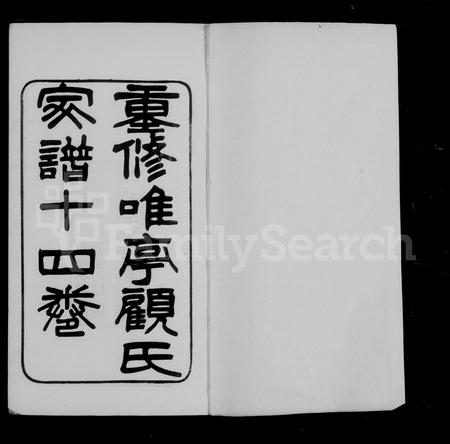 重修唯亭顧氏
家譜十四卷
FamilySearch